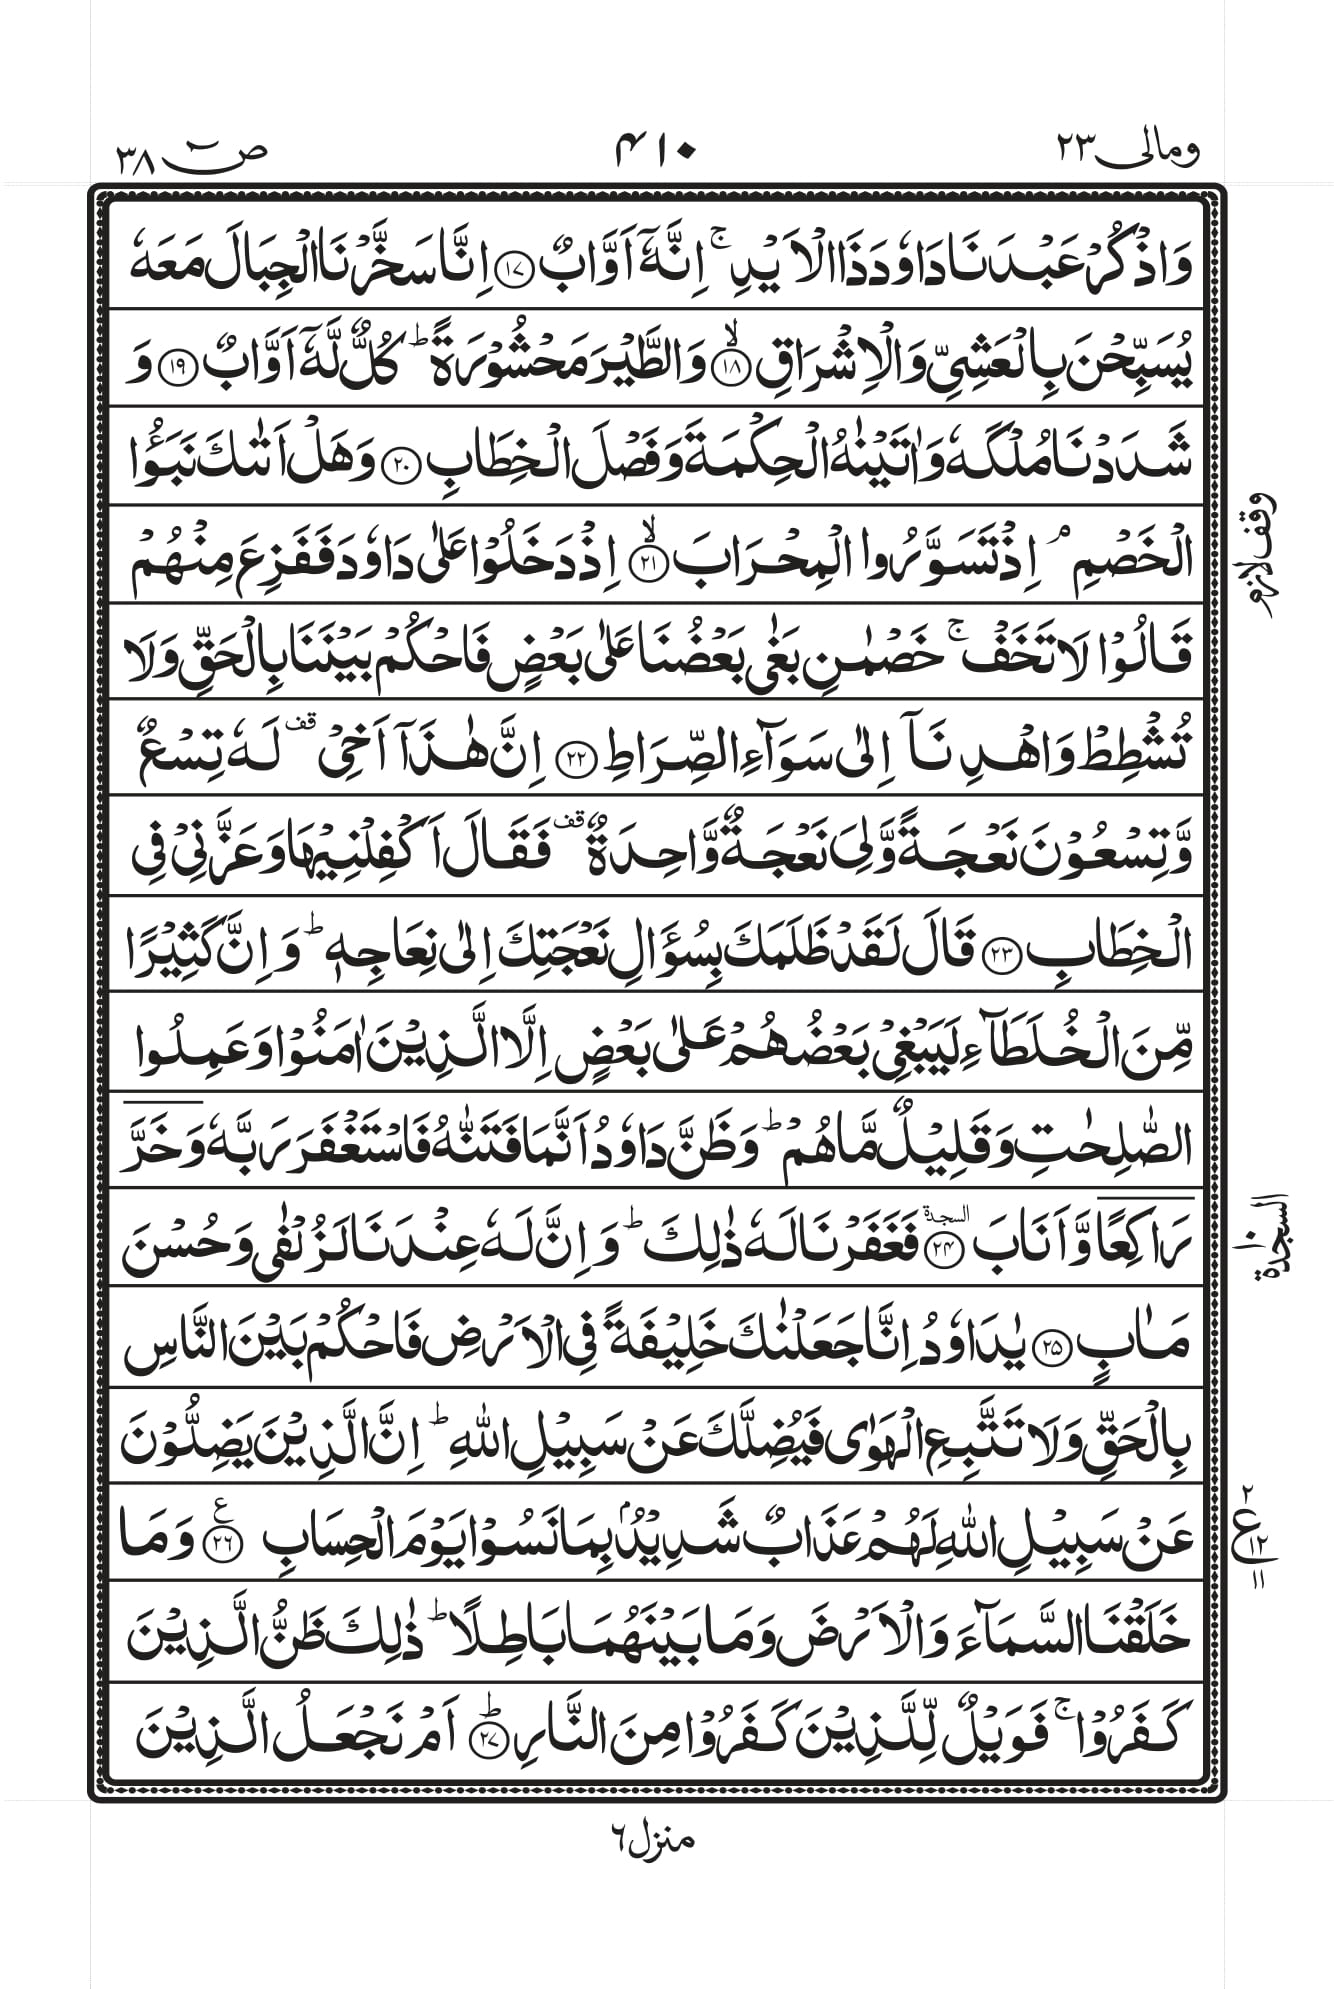 ومالی ٢٣
٤١٠
صٓ ٣٨
وَاذْكُرْ عَبْدَنَا دَاوٗدَ ذَا الْاَيْدِ ۚ اِنَّهٗۤ اَوَّابٌ ﴿١٧﴾ اِنَّا سَخَّرْنَا الْجِبَالَ مَعَهٗ
يُسَبِّحْنَ بِالْعَشِيِّ وَالْاِشْرَاقِ ﴿١٨﴾ۙ وَالطَّيْرَ مَحْشُوْرَةً ؕ كُلٌّ لَّهٗۤ اَوَّابٌ ﴿١٩﴾ وَ
شَدَدْنَا مُلْكَهٗ وَاٰتَيْنٰهُ الْحِكْمَةَ وَفَصْلَ الْخِطَابِ ﴿٢٠﴾ وَهَلْ اَتٰىكَ نَبَؤُا
الْخَصْمِ ۘ اِذْ تَسَوَّرُوا الْمِحْرَابَ ﴿٢١﴾ۙ اِذْ دَخَلُوْا عَلٰى دَاوٗدَ فَفَزِعَ مِنْهُمْ
وقف لازم
قَالُوْا لَا تَخَفْ ۚ خَصْمٰنِ بَغٰى بَعْضُنَا عَلٰى بَعْضٍ فَاحْكُمْ بَيْنَنَا بِالْحَقِّ وَلَا
تُشْطِطْ وَاهْدِنَاۤ اِلٰى سَوَآءِ الصِّرَاطِ ﴿٢٢﴾ اِنَّ هٰذَاۤ اَخِيْ قف لَهٗ تِسْعٌ
وَّتِسْعُوْنَ نَعْجَةً وَّلِيَ نَعْجَةٌ وَّاحِدَةٌ قف فَقَالَ اَكْفِلْنِيْهَا وَعَزَّنِيْ فِي
الْخِطَابِ ﴿٢٣﴾ قَالَ لَقَدْ ظَلَمَكَ بِسُؤَالِ نَعْجَتِكَ اِلٰى نِعَاجِهٖ ؕ وَاِنَّ كَثِيْرًا
مِّنَ الْخُلَطَآءِ لَيَبْغِيْ بَعْضُهُمْ عَلٰى بَعْضٍ اِلَّا الَّذِيْنَ اٰمَنُوْا وَعَمِلُوا
الصّٰلِحٰتِ وَقَلِيْلٌ مَّا هُمْ ؕ وَظَنَّ دَاوٗدُ اَنَّمَا فَتَنّٰهُ فَاسْتَغْفَرَ رَبَّهٗ وَخَرَّ
رَاكِعًا وَّاَنَابَ ﴿٢٤﴾ السجدة فَغَفَرْنَا لَهٗ ذٰلِكَ ؕ وَاِنَّ لَهٗ عِنْدَنَا لَزُلْفٰى وَحُسْنَ
السجدة ١٠
مَاٰبٍ ﴿٢٥﴾ يٰدَاوٗدُ اِنَّا جَعَلْنٰكَ خَلِيْفَةً فِي الْاَرْضِ فَاحْكُمْ بَيْنَ النَّاسِ
بِالْحَقِّ وَلَا تَتَّبِعِ الْهَوٰى فَيُضِلَّكَ عَنْ سَبِيْلِ اللّٰهِ ؕ اِنَّ الَّذِيْنَ يَضِلُّوْنَ
عَنْ سَبِيْلِ اللّٰهِ لَهُمْ عَذَابٌ شَدِيْدٌۢ بِمَا نَسُوْا يَوْمَ الْحِسَابِ ﴿٢٦﴾ ع وَمَا
٢ ع ١٢ ١١
خَلَقْنَا السَّمَآءَ وَالْاَرْضَ وَمَا بَيْنَهُمَا بَاطِلًا ؕ ذٰلِكَ ظَنُّ الَّذِيْنَ
كَفَرُوْا ۚ فَوَيْلٌ لِّلَّذِيْنَ كَفَرُوْا مِنَ النَّارِ ﴿٢٧﴾ؕ اَمْ نَجْعَلُ الَّذِيْنَ
منزل ٦